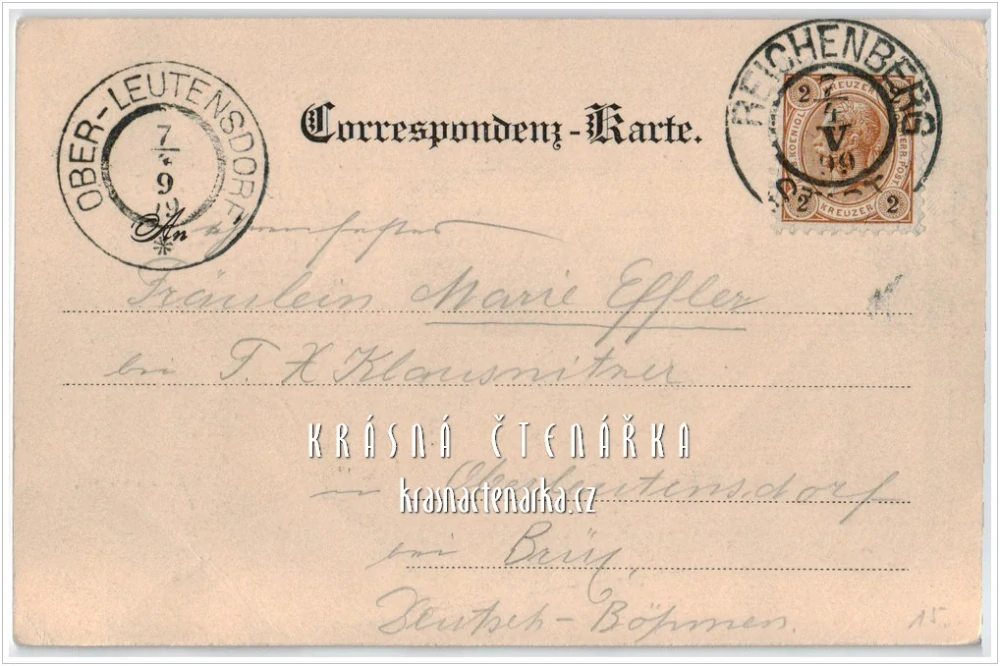 Correspondenz-Karte.
OBER-LEUTENSDORF
7
9
An
REICHENBERG
V
99
2 KREUZER 2
2 KREUZER 2
Fräulein Marie Effler
bei F. X Klausnitzer
KRÁSNÁ ČTENÁŘKA
krasnactenarka.cz
in Oberleutensdorf
bei Brüx,
Deutsch-Böhmen.
15.